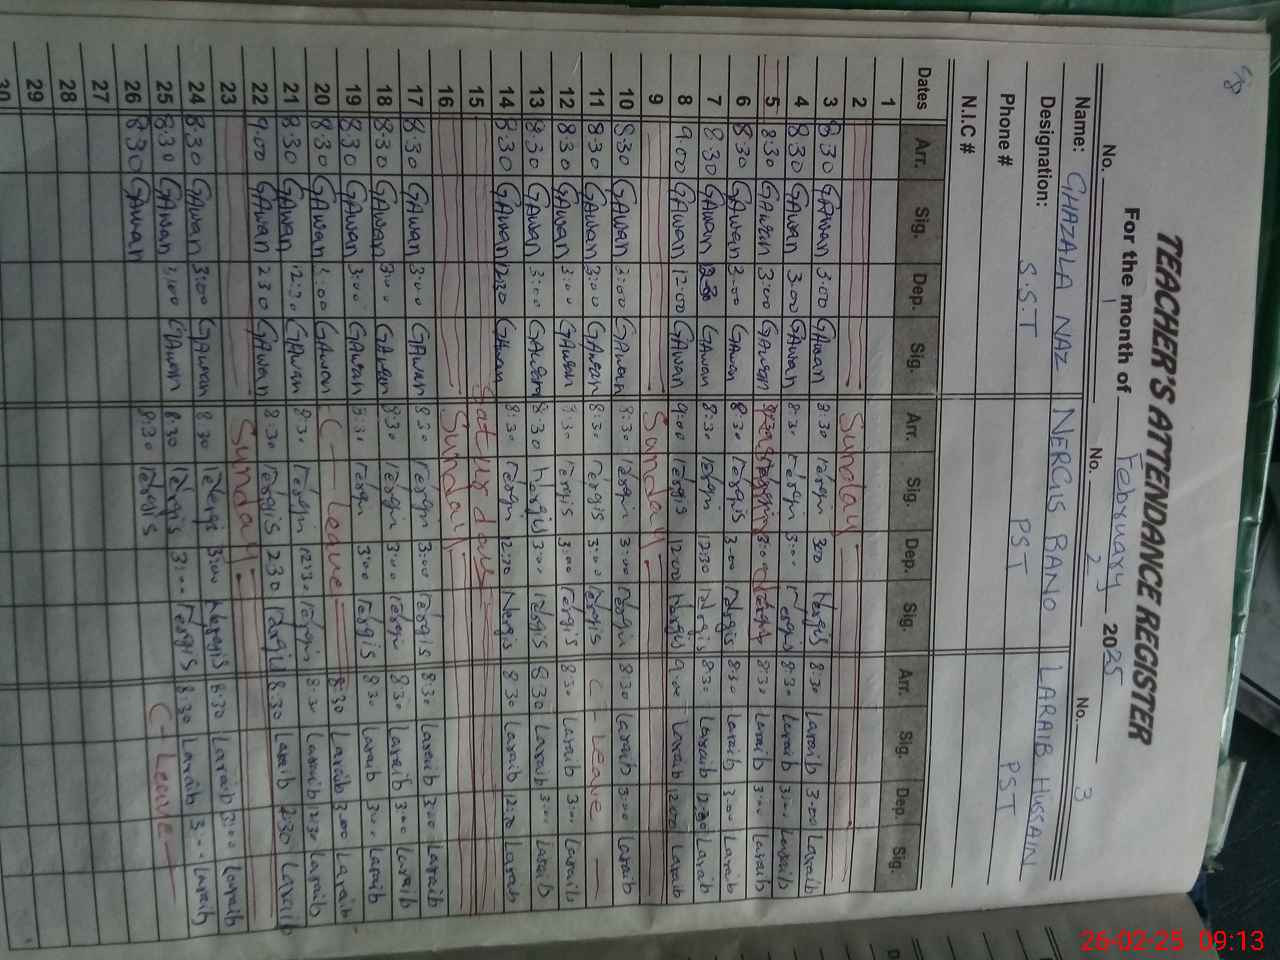 58
TEACHER'S ATTENDANCE REGISTER
For the month of February 2025
No. 1 No. 2 No. 3
Name: GHAZALA NAZ NERGIS BANO LARAIB HUSSAIN
Designation: S.S.T PST PST
Phone #
N.I.C #
Dates Arr. Sig. Dep. Sig. Arr. Sig. Dep. Sig. Arr. Sig. Dep. Sig.
1
2 Sunday
3 8:30 GAwan 3:00 GAwan 8:30 Nergis 3:00 Nergis 8:30 Laraib 3:00 Laraib
4 8:30 GAwan 3:00 GAwan 8:30 Nergis 3:00 Nergis 8:30 Laraib 3:00 Laraib
5 8:30 GAwan 3:00 GAwan 8:30 Nergis 3:00 Nergis 8:30 Laraib 3:00 Laraib
6 8:30 GAwan 3:00 GAwan 8:30 Nergis 3:00 Nergis 8:30 Laraib 3:00 Laraib
7 8:30 GAwan 12:30 GAwan 8:30 Nergis 12:30 Nergis 8:30 Laraib 12:30 Laraib
8 9:00 GAwan 12:00 GAwan 9:00 Nergis 12:00 Nergis 9:00 Laraib 12:00 Laraib
9 Sunday
10 8:30 GAwan 3:00 GAwan 8:30 Nergis 3:00 Nergis 8:30 Laraib 3:00 Laraib
11 8:30 GAwan 3:00 GAwan 8:30 Nergis 3:00 Nergis Leave
12 8:30 GAwan 3:00 GAwan 8:30 Nergis 3:00 Nergis 8:30 Laraib 3:00 Laraib
13 8:30 GAwan 3:00 GAwan 8:30 Nergis 3:00 Nergis 8:30 Laraib 3:00 Laraib
14 8:30 GAwan 12:30 GAwan 8:30 Nergis 12:30 Nergis 8:30 Laraib 12:30 Laraib
15 Saturday
16 Sunday
17 8:30 GAwan 3:00 GAwan 8:30 Nergis 3:00 Nergis 8:30 Laraib 3:00 Laraib
18 8:30 GAwan 3:00 GAwan 8:30 Nergis 3:00 Nergis 8:30 Laraib 3:00 Laraib
19 8:30 GAwan 3:00 GAwan 8:30 Nergis 3:00 Nergis 8:30 Laraib 3:00 Laraib
20 8:30 GAwan 3:00 GAwan Leave 8:30 Laraib 3:00 Laraib
21 8:30 GAwan 12:30 GAwan 8:30 Nergis 12:30 Nergis 8:30 Laraib 12:30 Laraib
22 9:00 GAwan 2:30 GAwan 8:30 Nergis 2:30 Nergis 8:30 Laraib 2:30 Laraib
23 Sunday
24 8:30 GAwan 3:00 GAwan 8:30 Nergis 3:00 Nergis 8:30 Laraib 3:00 Laraib
25 8:30 GAwan 3:00 GAwan 8:30 Nergis 3:00 Nergis 8:30 Laraib 3:00 Laraib
26 8:30 GAwan 8:30 Nergis Leave
27
28
29
30
26-02-25 09:13